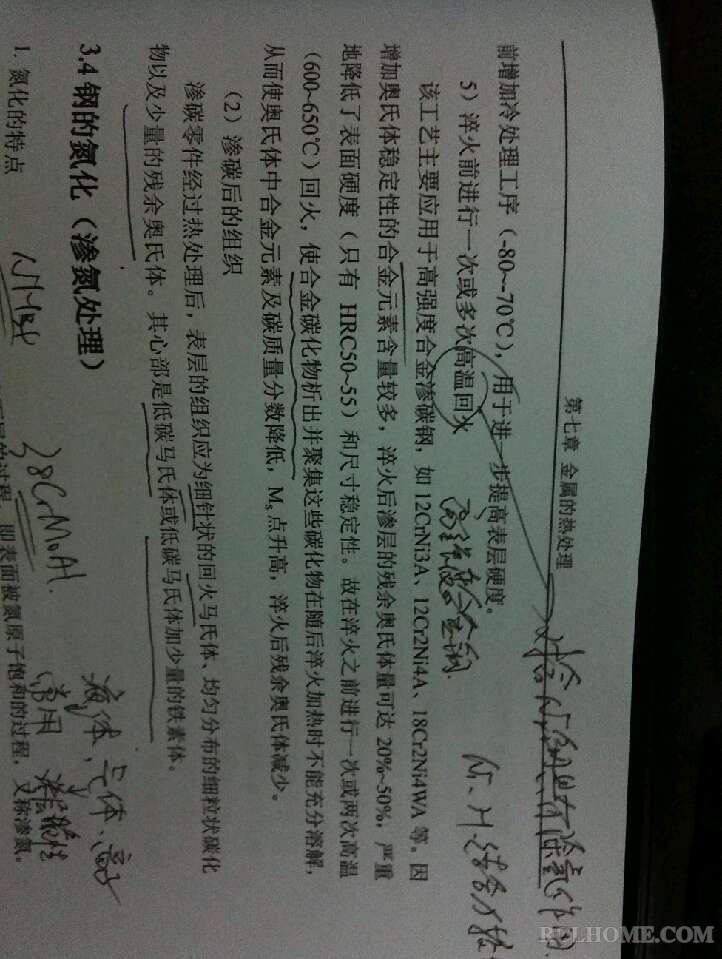 第七章 金属的热处理
前增加冷处理工序（-80~-70℃），用于进一步提高表层硬度。
5）淬火前进行一次或多次高温回火
高强度合金钢
该工艺主要应用于高强度合金渗碳钢，如12CrNi3A、12Cr2Ni4A、18Cr2Ni4WA 等。因
增加奥氏体稳定性的合金元素含量较多，淬火后渗层的残余奥氏体量可达 20%~50%，严重
地降低了表面硬度（只有 HRC50~55）和尺寸稳定性。故在淬火之前进行一次或两次高温
（600~650℃）回火，使合金碳化物析出并聚集这些碳化物在随后淬火加热时不能充分溶解，
从而使奥氏体中合金元素及碳质量分数降低，Ms点升高，淬火后残余奥氏体减少。
（2）渗碳后的组织
渗碳零件经过热处理后，表层的组织应为细针状的回火马氏体、均匀分布的细粒状碳化
物以及少量的残余奥氏体。其心部是低碳马氏体或低碳马氏体加少量的铁素体。
3.4 钢的氮化（渗氮处理）
38CrMoAl.
液体、气体、离子
常用
脆性
1. 氮化的特点
即表面被氮原子饱和的过程，又称渗氮。
RCLHOME.COM